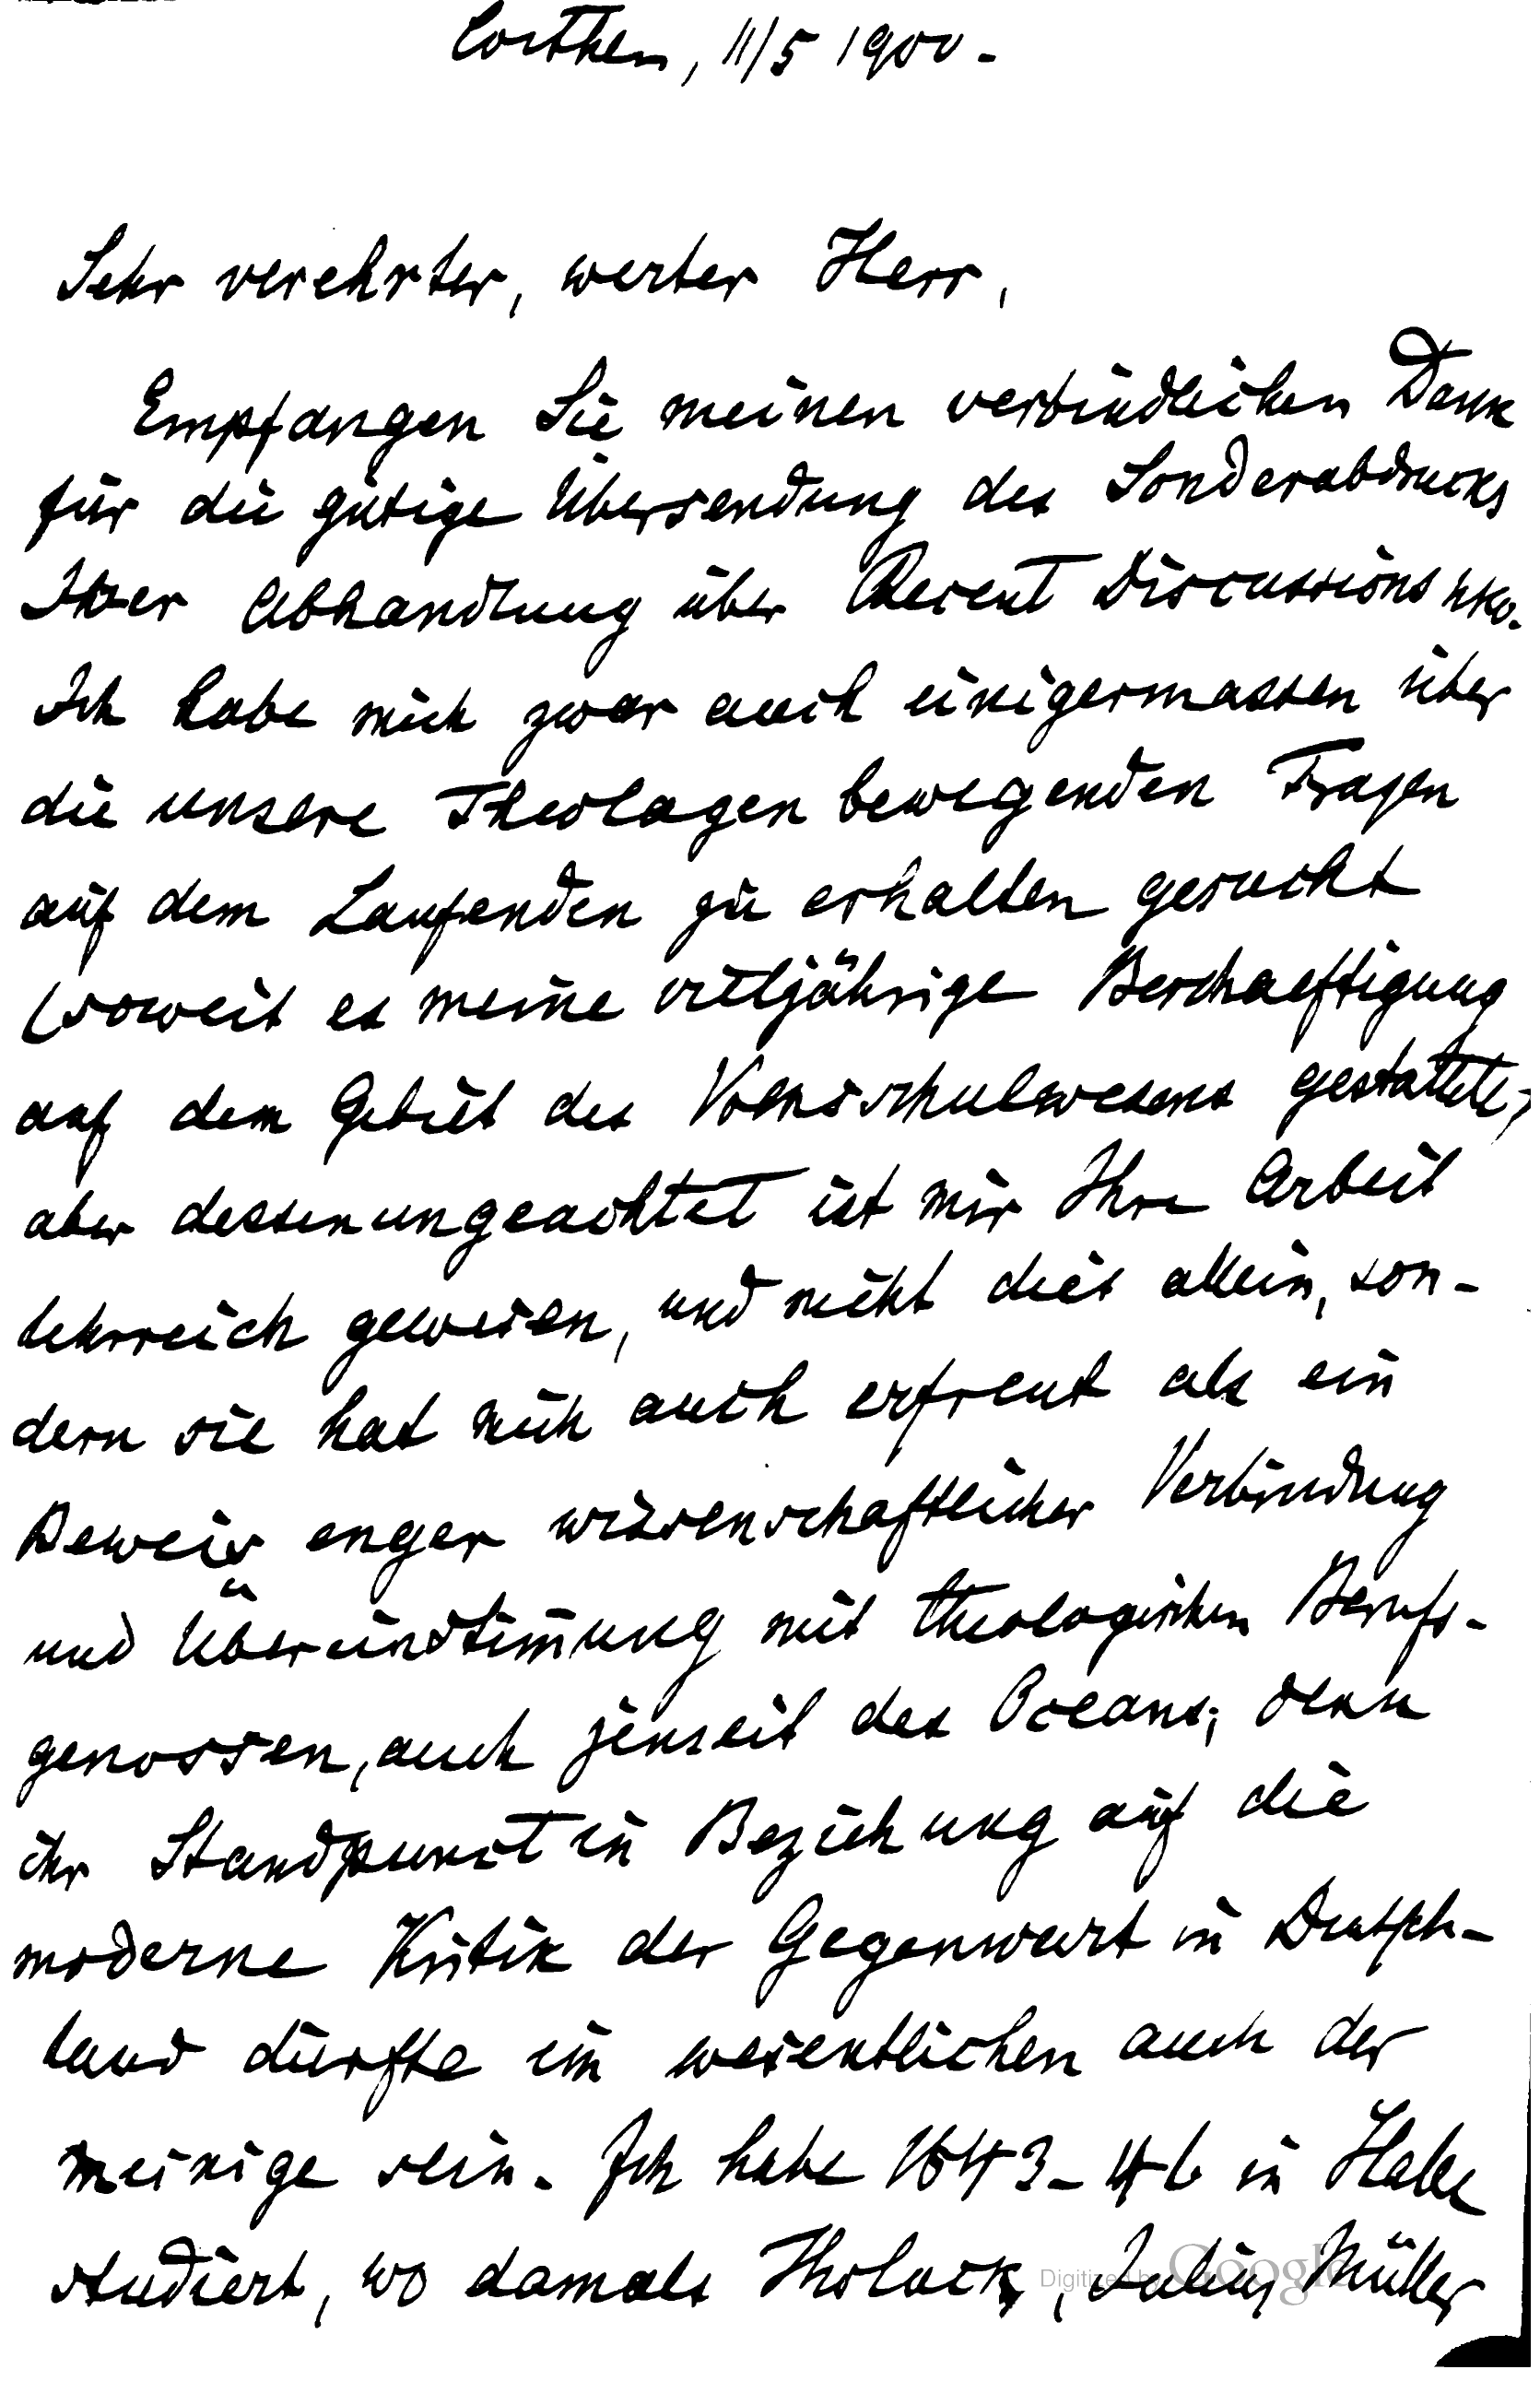 Coethen, 11/5 1900.
Sehr verehrter, werter Herr,
Empfangen Sie meinen verbindlichen Dank
für die gütige Übersendung des Sonderabdrucks
Ihrer Abhandlung über Recent Discussions usw.
Ich habe mich zwar auch einigermassen über
die unsere Theologen bewegenden Fragen
auf dem Laufenden zu erhalten gesucht
(soweit es meine vieljährige Beschaeftigung
auf dem Gebiet des Volksschulwesens gestattete,
aber dessenungeachtet ist mir Ihre Arbeit
lehrreich gewesen, und nicht dies allein, son-
dern sie hat mich auch erfreut als ein
Beweis enger wissenschaftlicher Verbindung
und Übereinstimung mit theologischen Berufs-
genossen, auch jenseit des Oceans; denn
ihr Standpunkt in Beziehung auf die
moderne Kritik der Gegenwart in Deutsch-
land dürfte im wesentlichen auch der
meinige sein. Ich habe 1843-46 in Halle
studiert, wo damals Tholuck, Julius Müller
Digitized by Google